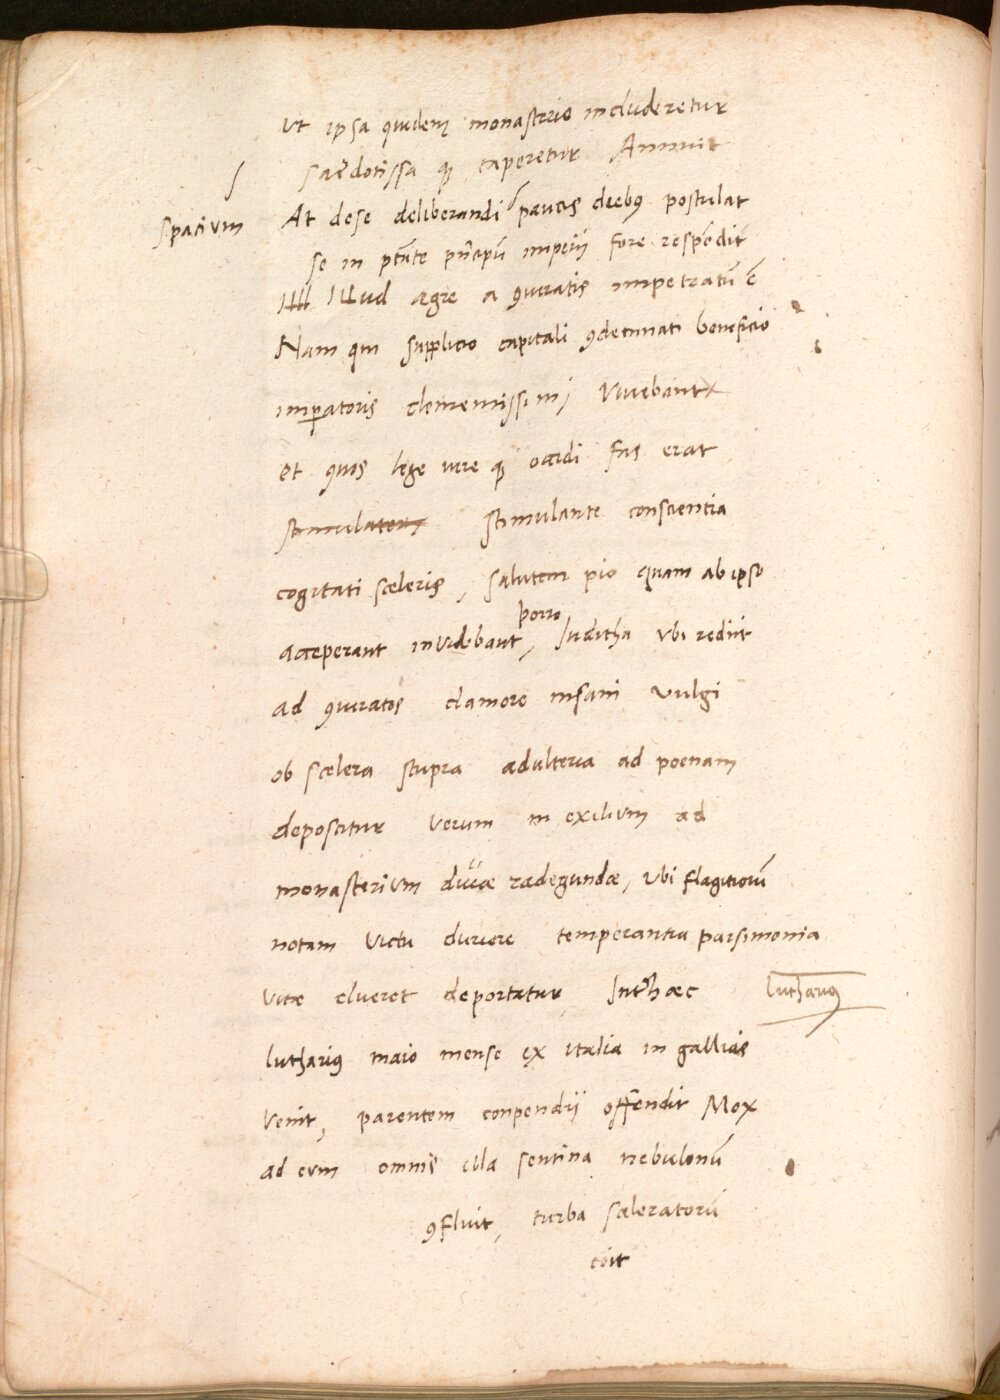 ut ipsa quidem monasterio includeretur
sac̃dotissa q̃ caperetur Annuit
spacium
At de se deliberandi ⌠ paucis diebꝰ postulat
se in ptãte prĩcipũ imperij fore respõdit
Illud aegre a ꝯiuratis impetratũ ẽ
Nam qui supplicio capitali ꝯdemnati beneficio
imꝑatoris clementissimi vivebant
et quos lege iure q̃ occidi fas erat
stimulante conscientia
cogitati sceleris, salutem pio quam ab ipso
porro
acceperant invidebant, Juditha ubi rediit
ad ꝯiuratos clamore insani vulgi
ob scelera stupra adulteria ad poenam
deposcitur verum in exilium ad
monasterium divae radegundae, ubi flagitiorũ
notam victu duriore temperantia parsimonia
vitae elueret deportatur Int̃haec
lutharius
lutharius maio mense ex italia in gallias
venit, parentem conpendij offendit Mox
ad eum omnis illa sentina nebulonũ
ꝯfluit, turba sceleratorũ
coit